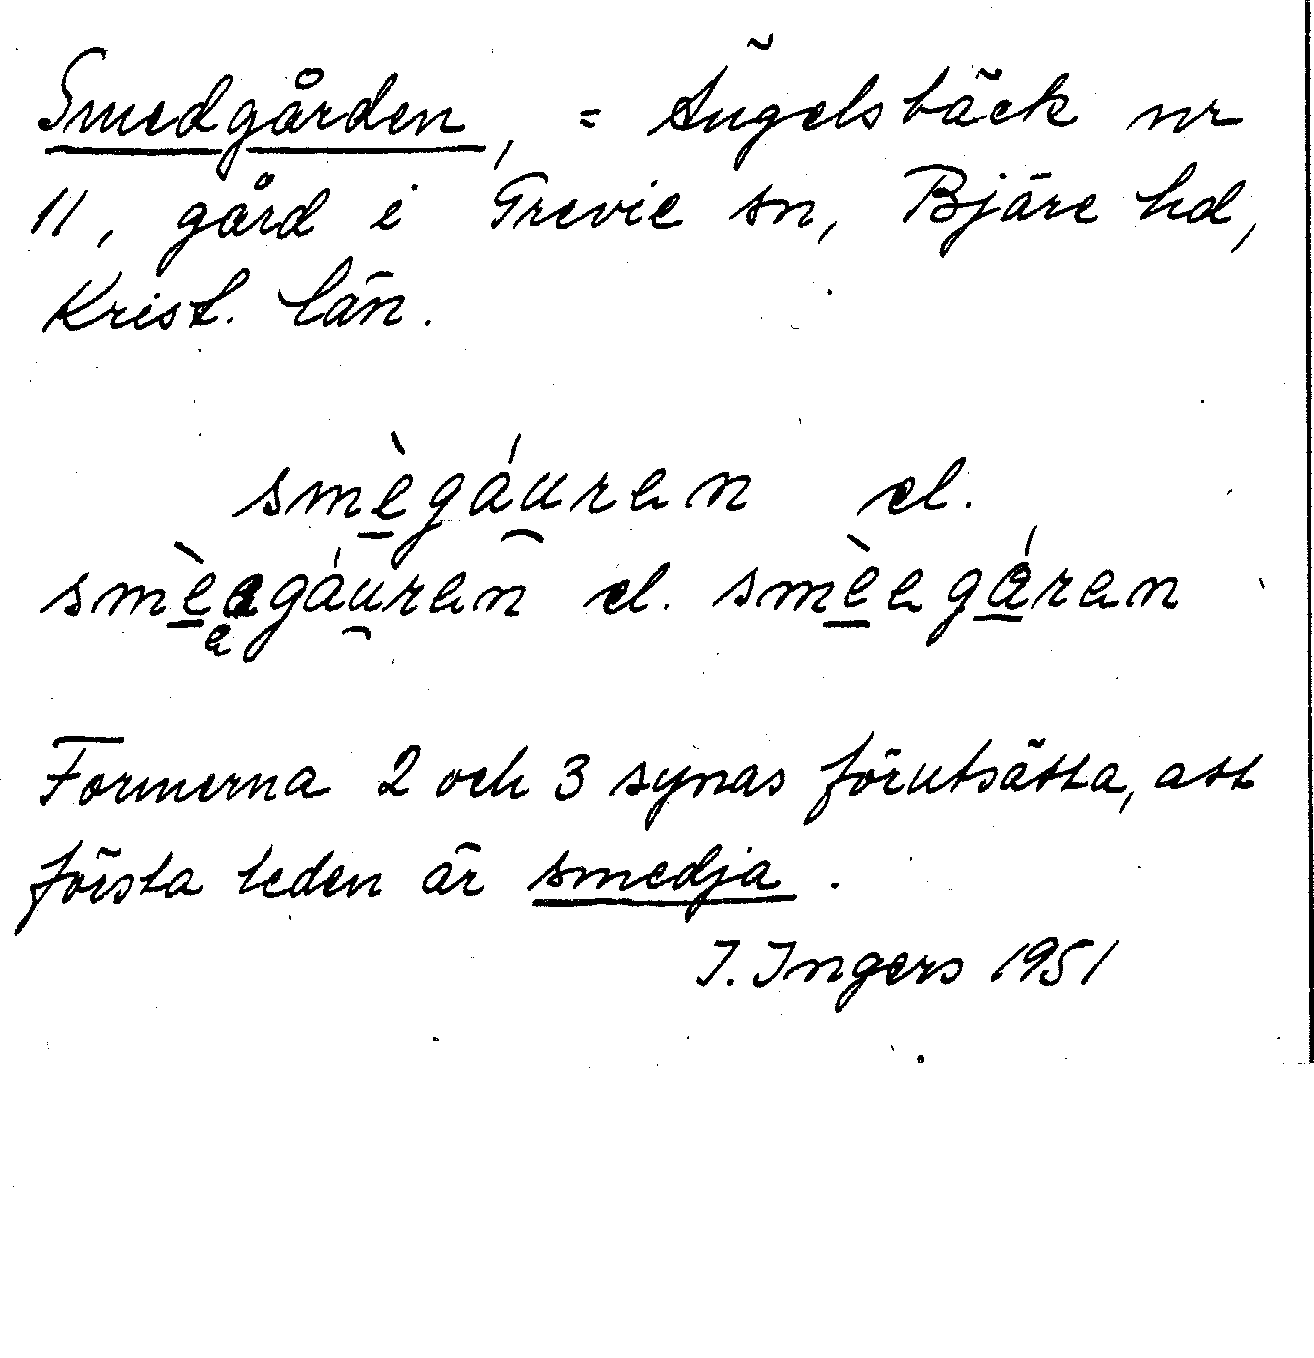 Smedgården, = Ängelsbäck nr
11, gård i Grevie sn, Bjäre hd,
Krist. län.
smègáuren el.
smèegáuren el. smèegáren
Formerna 2 och 3 synas förutsätta, att
första leden är smedja.
I. Ingers 1951